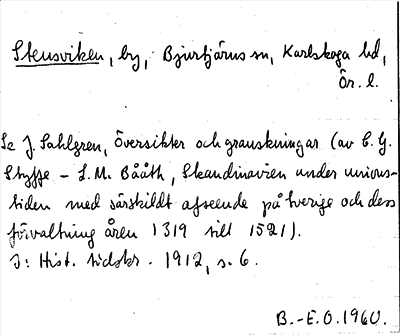 Stensviken, by, Bjurtjärns sn, Karlskoga hd,
Ör. l.
Se J. Sahlgren, Översikter och granskningar (av C. G.
Styffe – L. M. Bååth, Skandinavien under unions-
tiden med särskildt afseende på Sverige och dess
förvaltning åren 1319 till 1521).
I: Hist. tidskr. 1912, s. 6.
B.-E.O. 1960.